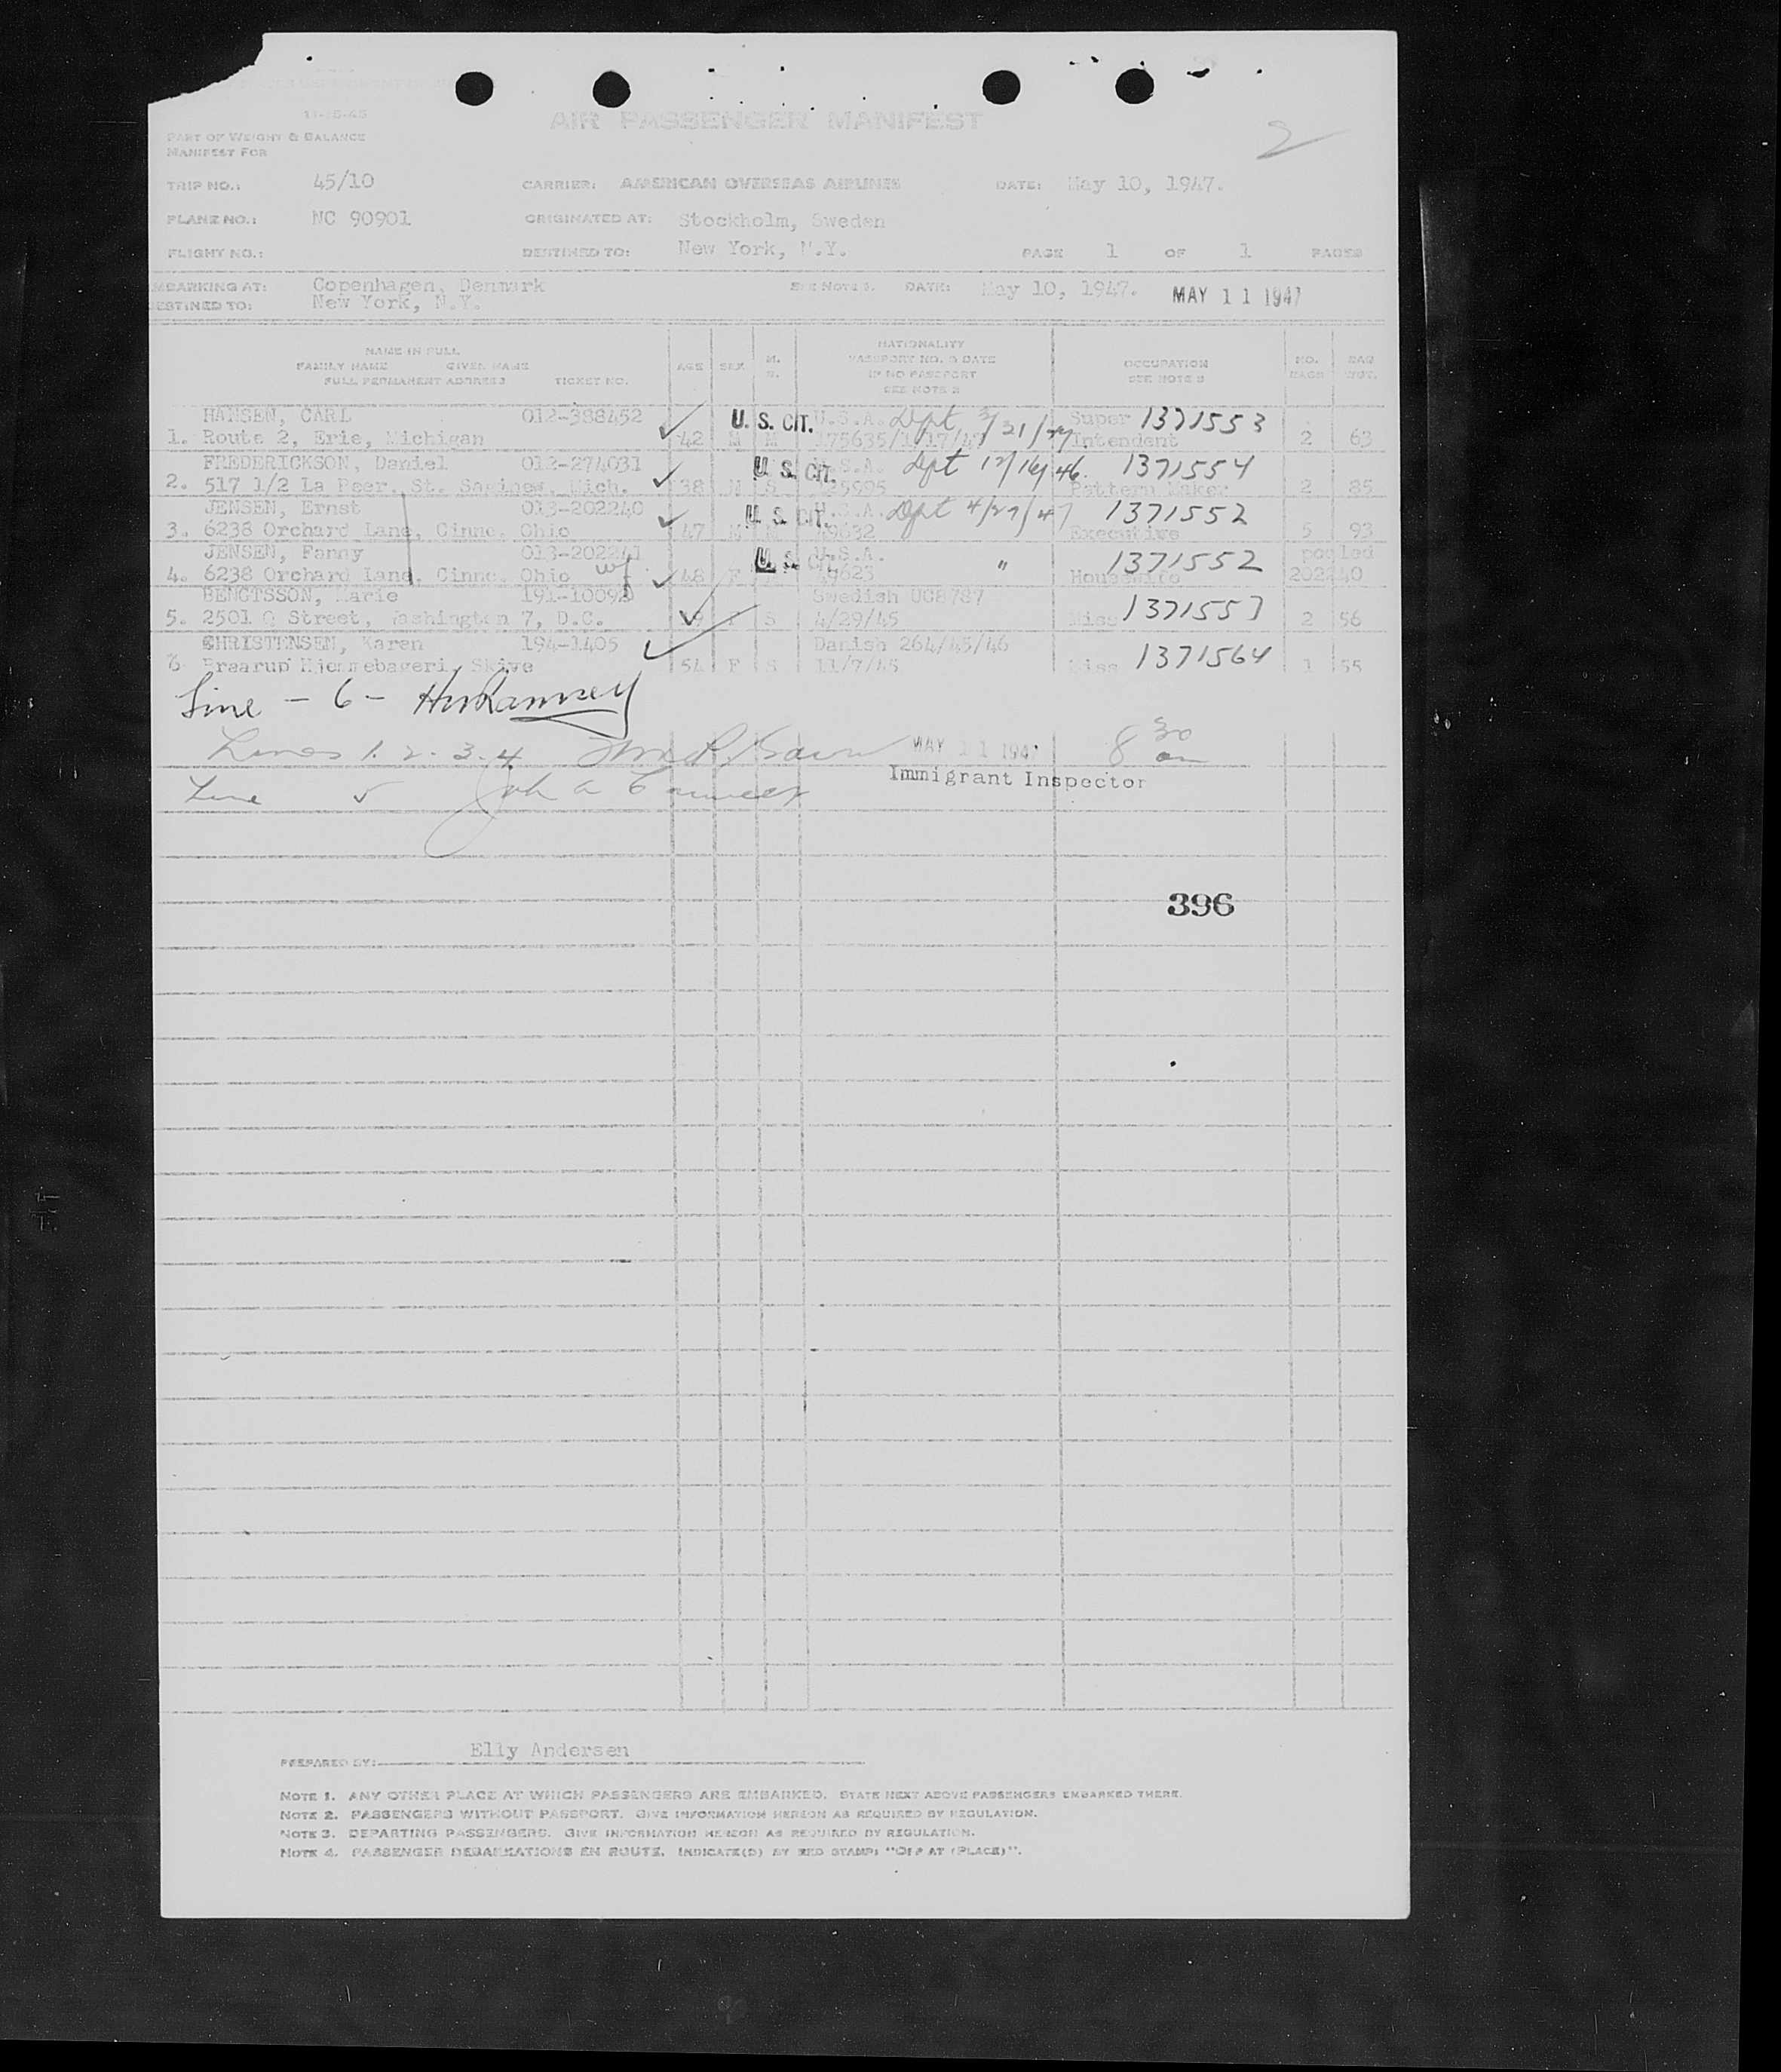 11-15-45
AIR PASSENGER MANIFEST
2
PART OF WEIGHT & BALANCE
MANIFEST FOR
TRIP NO.: 45/10 CARRIER: AMERICAN OVERSEAS AIRLINES DATE: May 10, 1947.
PLANE NO.: NC 90901 ORIGINATED AT: Stockholm, Sweden
FLIGHT NO.: DESTINED TO: New York, N.Y. PAGE 1 OF 1 PAGES
MBARKING AT: Copenhagen, Denmark SEE NOTE 1. DATE: May 10, 1947. MAY 11 1947
ESTINED TO: New York, N.Y.
NAME IN FULL
FAMILY NAME GIVEN NAME
FULL PERMANENT ADDRESS TICKET NO.
AGE SEX M. S.
NATIONALITY
PASSPORT NO. & DATE
IF NO PASSPORT
SEE NOTE 2
OCCUPATION
SEE NOTE 3
NO. BAGS BAG WGT.
HANSEN, CARL 012-388452 U. S. CIT. U.S.A. Dept 3/21/47 Super 1371553
1. Route 2, Erie, Michigan 42 M M Intendent 2 63
FREDERICKSON, Daniel 012-274031 U. S. CIT. U.S.A. Dept 12/16/46. 1371554
2. 517 1/2 La Peer, St. Saginaw, Mich. 38 M S Pattern Maker 2 85
JENSEN, Ernst 013-202240 U. S. CIT. U.S.A. Dept 4/27/47 1371552
3. 6238 Orchard Lane, Cinno, Ohio 47 M M 49632 Executive 5 93
JENSEN, Fanny 013-202241 U. S. CIT. U.S.A. " 1371552 pooled
4. 6238 Orchard Lane, Cinno, Ohio wf 48 F 49623 Housewife 202240
BENGTSSON, Marie 191-10092 Swedish UC8787 1371557
5. 2501 Q Street, Washington 7, D.C. F S 4/29/45 Miss 2 56
CHRISTENSEN, Karen 194-1405 Danish 264/45/46 1371564
6. Braarup Hjemmebageri, Skive 54 F S 11/7/45 Miss 1 55
Line - 6 -
Lines 1. 2. 3. 4 MAY 11 1947 8 30 am
Immigrant Inspector
Line 5
396
PREPARED BY: Elly Andersen
NOTE 1. ANY OTHER PLACE AT WHICH PASSENGERS ARE EMBARKED. STATE NEXT ABOVE PASSENGERS EMBARKED THERE.
NOTE 2. PASSENGERS WITHOUT PASSPORT. GIVE INFORMATION HEREON AS REQUIRED BY REGULATION.
NOTE 3. DEPARTING PASSENGERS. GIVE INFORMATION HEREON AS REQUIRED BY REGULATION.
NOTE 4. PASSENGER DEBARKATIONS EN ROUTE. INDICATE(D) BY RED STAMP: "OFF AT (PLACE)".